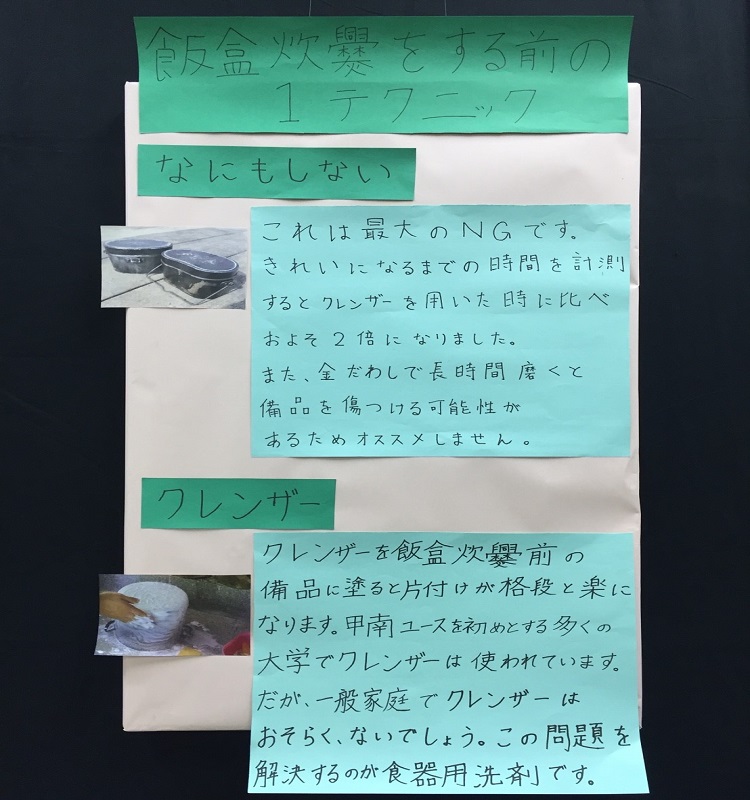 飯盒炊爨をする前の
1テクニック
なにもしない
これは最大のNGです。
きれいになるまでの時間を計測
するとクレンザーを用いた時に比べ
およそ2倍になりました。
また、金だわしで長時間磨くと
備品を傷つける可能性が
あるためオススメしません。
クレンザー
クレンザーを飯盒炊爨前の
備品に塗ると片付けが格段と楽に
なります。甲南ユースを初めとする多くの
大学でクレンザーは使われています。
だが、一般家庭でクレンザーは
おそらく、ないでしょう。この問題を
解決するのが食器用洗剤です。